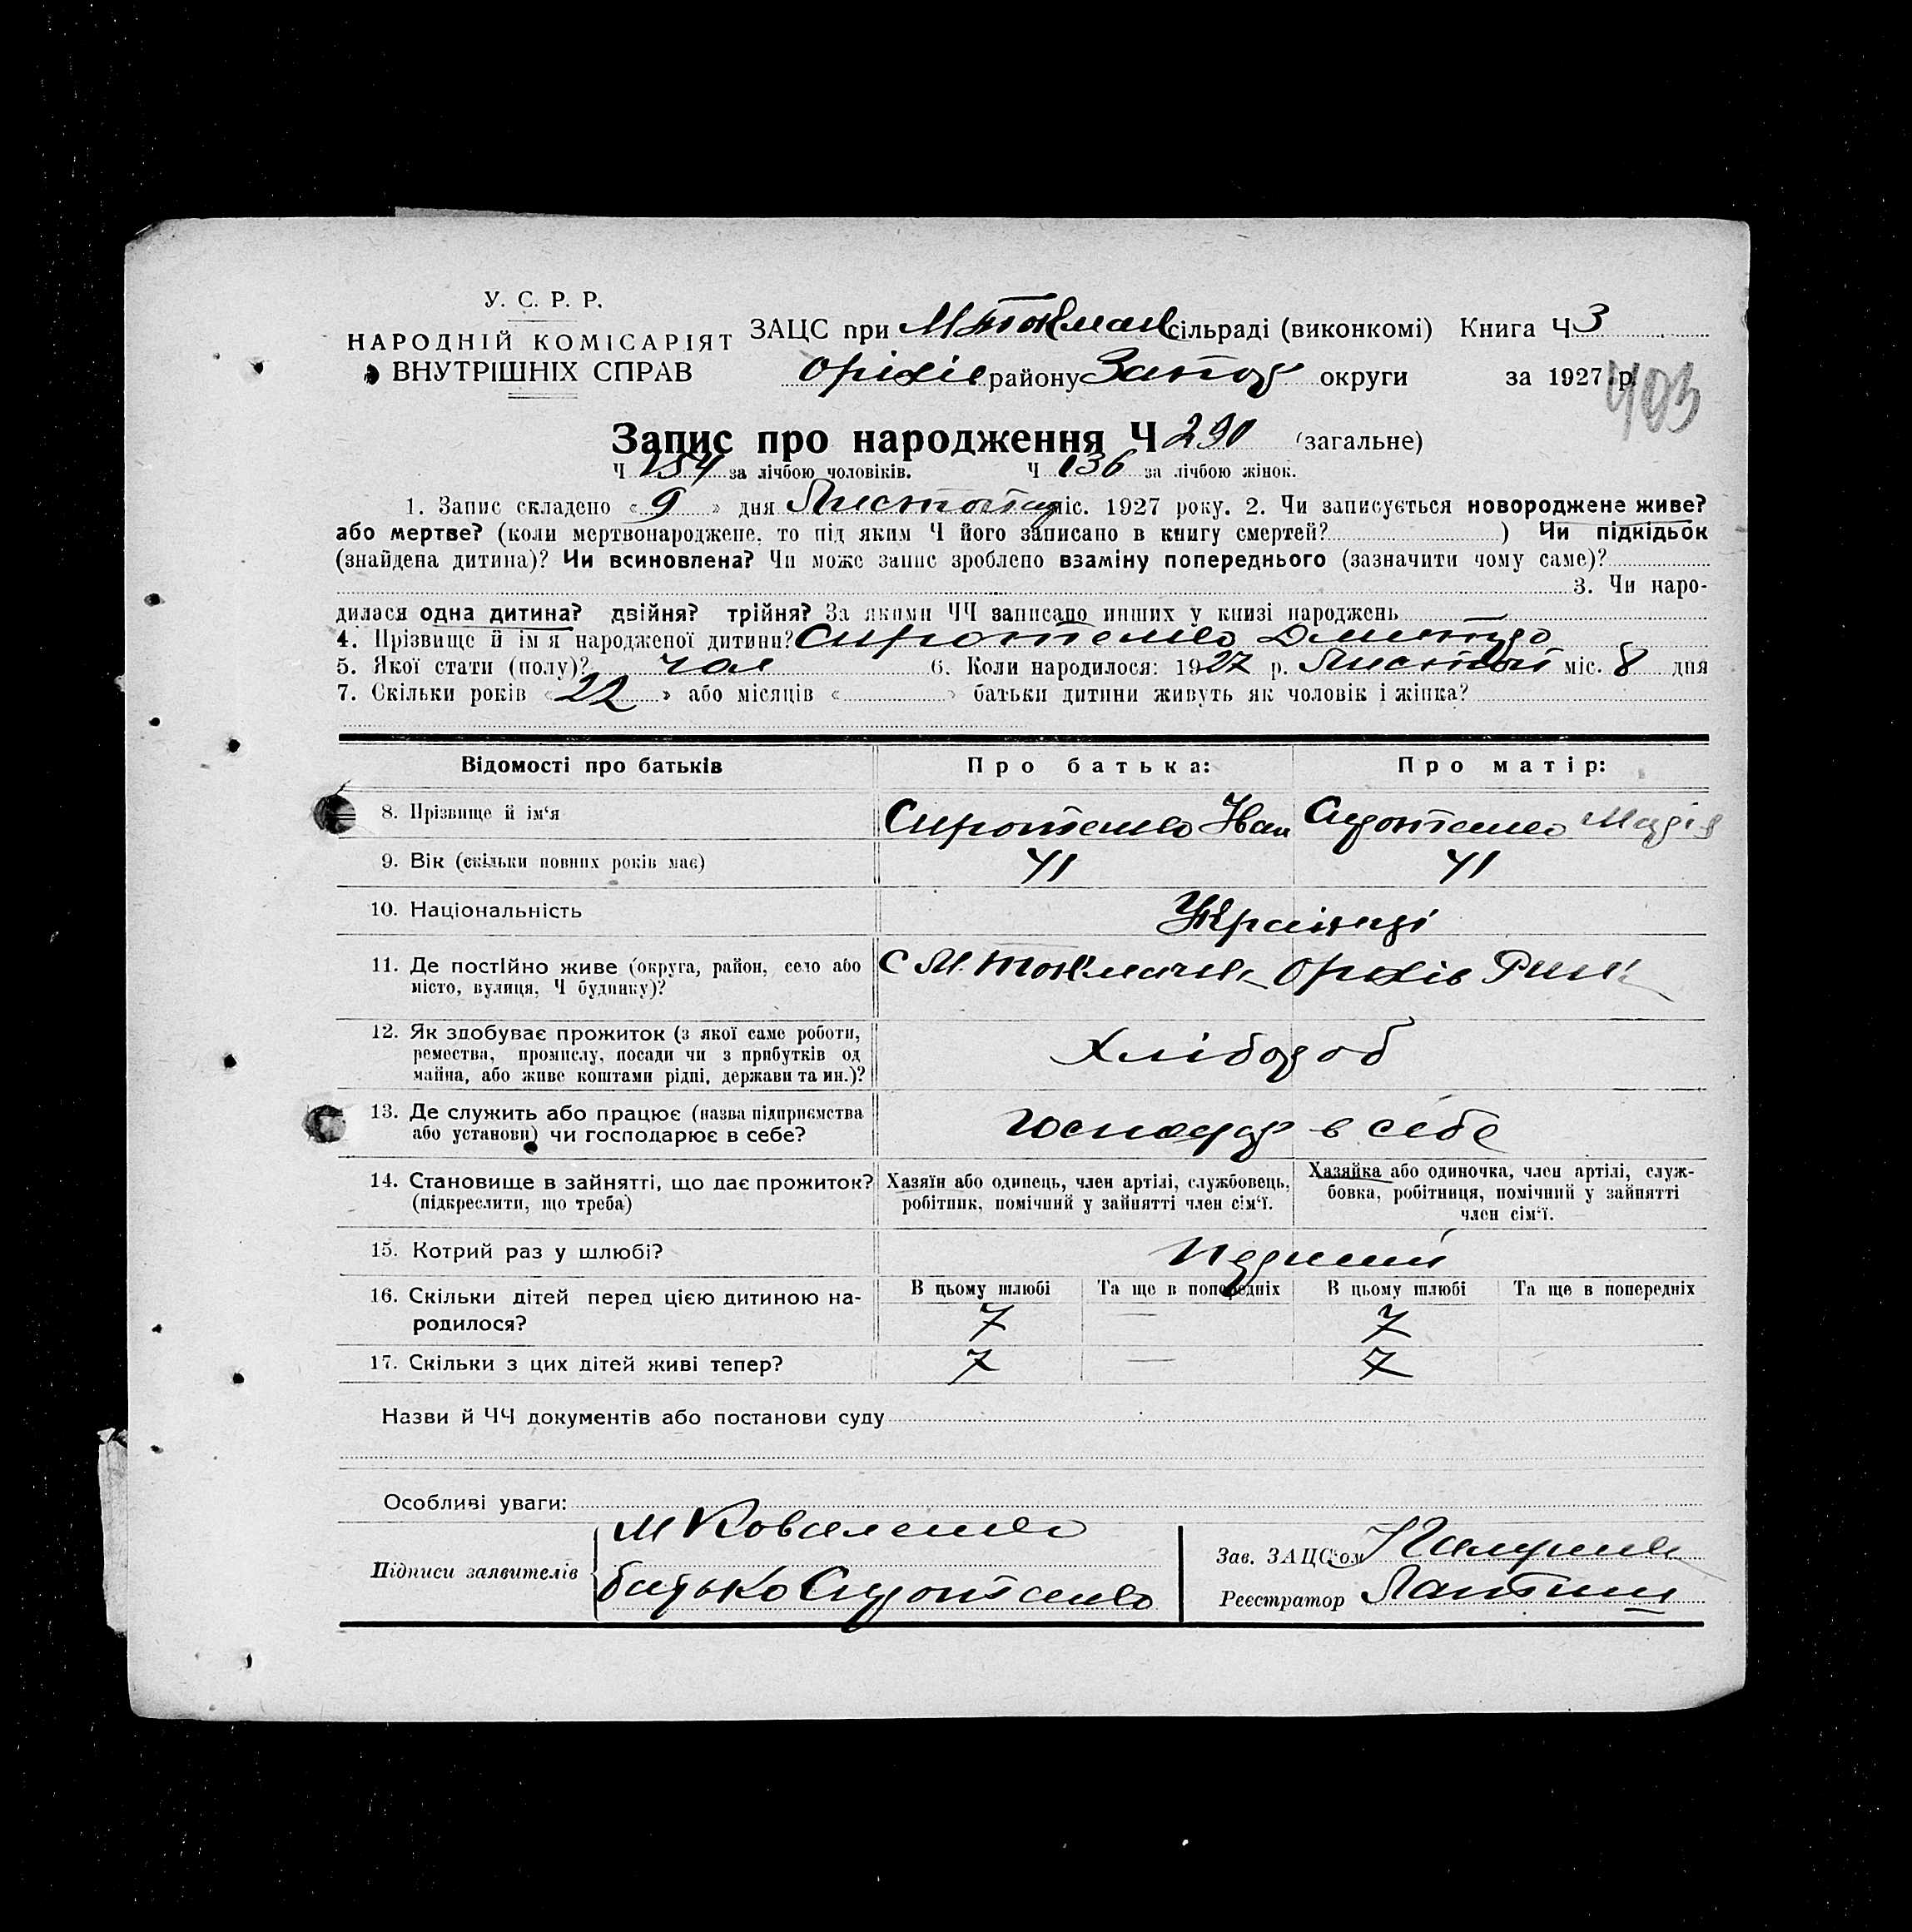 У. С. Р. Р.
НАРОДНІЙ КОМІСАРІЯТ
ВНУТРІШНІХ СПРАВ
ЗАЦС при М Токмач сільраді (виконкомі) Книга Ч 3
Оріхів району Запор округи за 1927 р.
403
Запис про народження Ч 290 (загальне)
Ч 154 за лічбою чоловіків. Ч 136 за лічбою жінок.
1. Запис складено « 9 » дня Листопад міс. 1927 року. 2. Чи записується новороджене живе?
або мертве? (коли мертвонароджене, то під яким Ч його записано в книгу смертей? ) Чи підкідьок
(знайдена дитина)? Чи всиновлена? Чи може запис зроблено взаміну попереднього (зазначити чому саме)?
3. Чи наро-
дилася одна дитина? двійня? трійня? За якими ЧЧ записано инших у книзі народжень
4. Прізвище й ім'я народженої дитини? Сиротенко Дмитро
5. Якої стати (полу)? чол 6. Коли народилося: 1927 р. Листопад міс. 8 дня
7. Скільки років « 22 » або місяців « » батьки дитини живуть як чоловік і жінка?
Відомості про батьків Про батька: Про матір:
8. Прізвище й ім'я Сиротенко Іван Сиротенко Марія
9. Вік (скільки повних років має) 41 41
10. Національність Українці
11. Де постійно живе (округа, район, село або С М. Токмачка Оріхів
місто, вулиця, Ч будинку)?
12. Як здобуває прожиток (з якої саме роботи,
ремества, промислу, посади чи з прибутків од Хлібороб
майна, або живе коштами рідні, держави та ин.)?
13. Де служить або працює (назва підприємства
або установи) чи господарює в себе? господар в себе
14. Становище в зайнятті, що дає прожиток? Хазяїн або одинець, член артілі, службовець, Хазяйка або одиночка, член артілі, служ-
(підкреслити, що треба) робітник, помічний у зайнятті член сім'ї. бовка, робітниця, помічний у зайнятті
член сім'ї.
15. Котрий раз у шлюбі? Перший
16. Скільки дітей перед цією дитиною на- В цьому шлюбі Та ще в попередніх В цьому шлюбі Та ще в попередніх
родилося? 7 — 7
17. Скільки з цих дітей живі тепер? 7 — 7
Назви й ЧЧ документів або постанови суду
Особливі уваги:
М Коваленко
Підписи заявителів батько Сиротенко
Зав. ЗАЦС'ом
Реєстратор